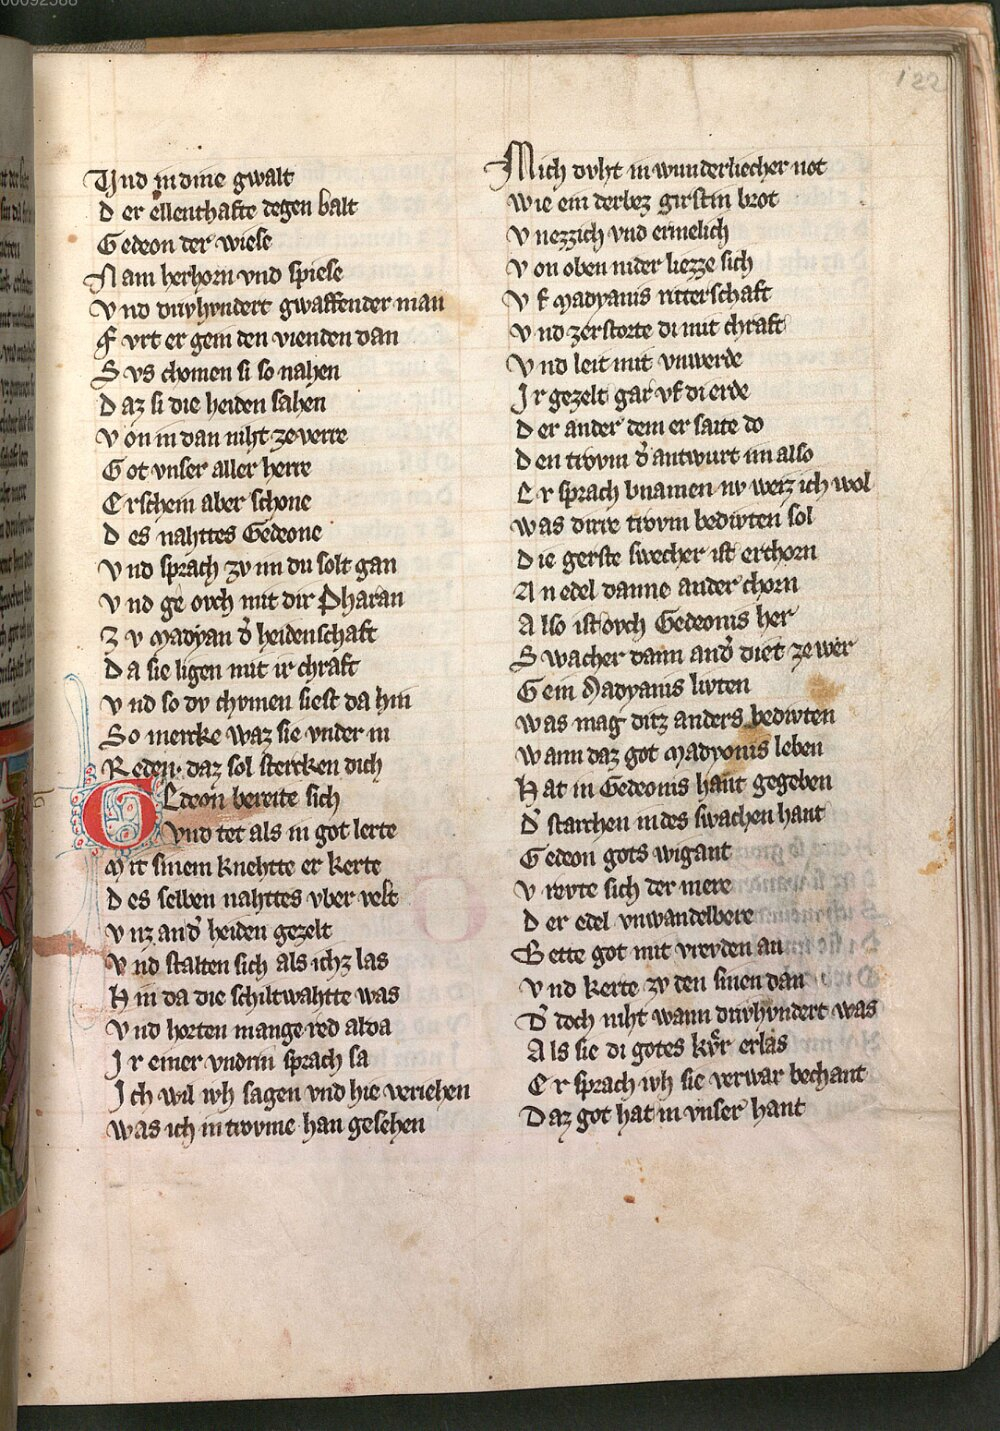 00092588
122
Vnd in dine gwalt
Der ellenthafte degen balt
Gedeon der wiese
Nam herhorn vnd spiese
Vnd drivhvndert gwaffender man
Fvrt er gein den vienden dan
Svs chomen si so nahen
Daz si die heiden sahen
Von in dan niht ze verre
Got vnser aller herre
Erschein aber schone
Des nahttes Gedeone
Vnd sprach zv im du solt gan
Vnd ge ovch mit dir Pharan
Zv Madyan d̾ heidenschaft
Da sie ligen mit ir chraft
Vnd so dv chvmen siest da hin
So mercke waz sie vnder in
Reden. daz sol stercken dich
GEdeon bereite sich
Vnd tet als in got lerte
Mit sinem knehtte er kerte
Des selben nahttes vber velt
Vnz an d̾ heiden gezelt
Vnd stalten sich als ichz las
Hin da die schiltwahtte was
Vnd horten mange red alda
Ir einer vndrin sprach sa
Ich wil ivh sagen vnd hie veriehen
Was ich in trovme han gesehen
Mich dvht in wunderliecher not
Wie ein derbez girstin brot
Vnezzich vnd ermelich
Von oben nider liezze sich
Vf Madyanis ritterschaft
Vnd zerstorte di mit chraft
Vnd leit mit vnwerde
Ir gezelt gar vf di erde
Der ander dem er saite do
Den trovm d̾ antwurt im also
Er sprach bnamen nv weiz ich wol
Was dirre trovm bedivten sol
Die gerste swecher ist erchorn
An edel danne ander chorn
Also ist ovch Gedeonis her
Swacher dann and̾ diet ze wer
Gein Madyanis livten
Was mag ditz anders bedivten
Wann daz got Madyonis leben
Hat in Gedeonis hant gegeben
D̾ starchen in des swachen hant
Gedeon gots wigant
Vrevte sich der mere
Der edel vnwandelbere
Bette got mit vrevden an
Vnd kerte zv den sinen dan
D̾ doch niht wann drivhvndert was
Als sie di gotes kvͦr erlas
Er sprach ivh sie verwar bechant
Daz got hat in vnser hant